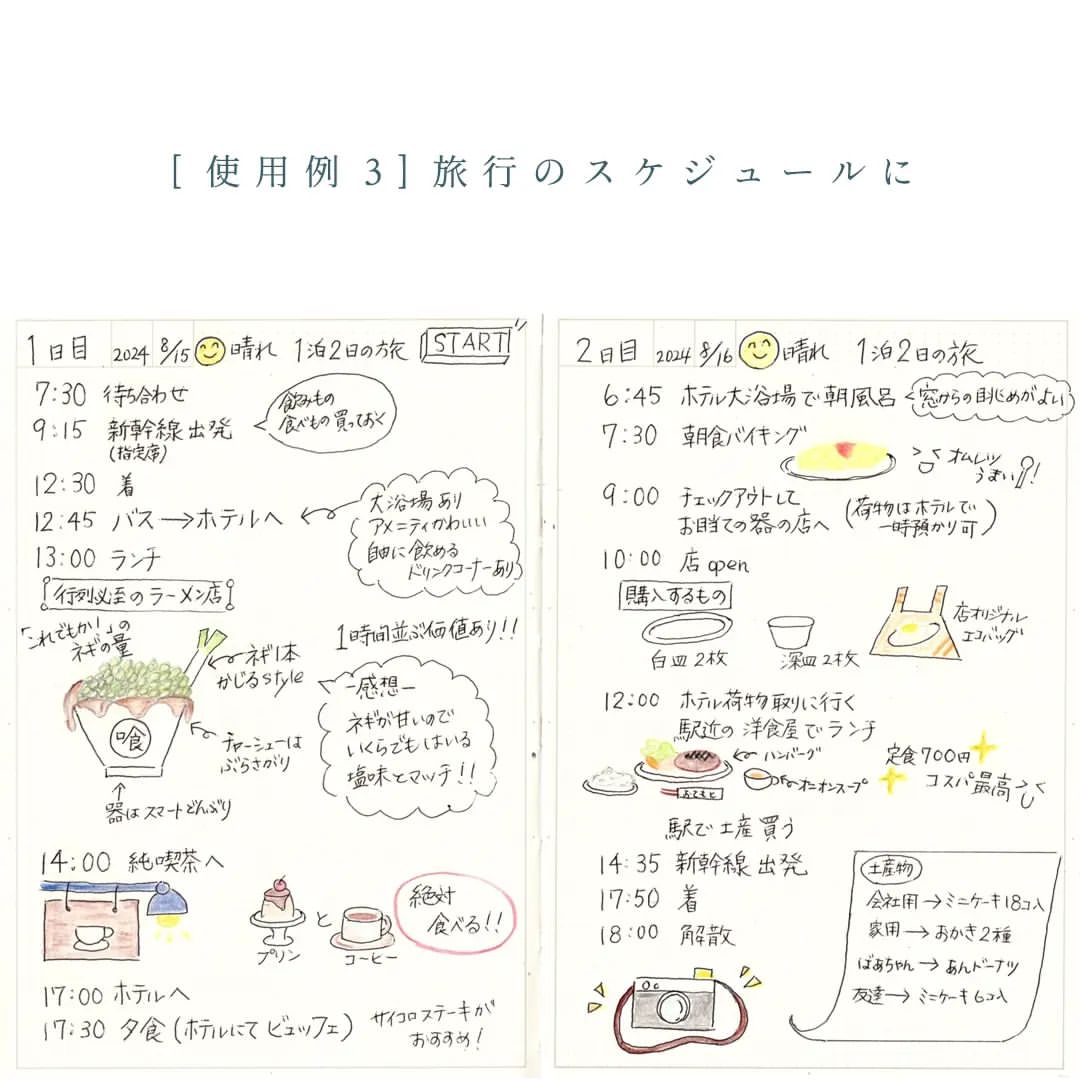 [使用例3]旅行のスケジュールに
1日目 2024 8/15 晴れ 1泊2日の旅 START
7:30 待ち合わせ
9:15 新幹線出発
(指定席)
飲みもの
食べもの買っておく
12:30 着
12:45 バス→ホテルへ
大浴場あり
アメニティかわいい
自由に飲める
ドリンクコーナーあり
13:00 ランチ
行列必至のラーメン店
「これでもか!」の
ネギの量
1時間並ぶ価値あり!!
ネギ1本
かじるstyle
喰
チャーシューは
ぶらさがり
器はスマートどんぶり
-感想-
ネギが甘いので
いくらでもはいる
塩味とマッチ!!
14:00 純喫茶へ
プリン
と
コーヒー
絶対
食べる!!
17:00 ホテルへ
17:30 夕食(ホテルにてビュッフェ)
サイコロステーキが
おすすめ!
2日目 2024 8/16 晴れ 1泊2日の旅
6:45 ホテル大浴場で朝風呂
窓からの眺めがよい
7:30 朝食バイキング
オムレツ
うまい!
9:00 チェックアウトして
お目当ての器の店へ
(荷物はホテルで
一時預かり可)
10:00 店open
購入するもの
白皿2枚
深皿2枚
店オリジナル
エコバッグ
12:00 ホテル荷物取りに行く
駅近の洋食屋でランチ
ハンバーグ
オニオンスープ
おてもと
定食700円
コスパ最高
駅で土産買う
14:35 新幹線出発
17:50 着
18:00 解散
土産物
会社用→ミニケーキ18コ入
家用→おかき2種
ばあちゃん→あんドーナツ
友達→ミニケーキ6コ入